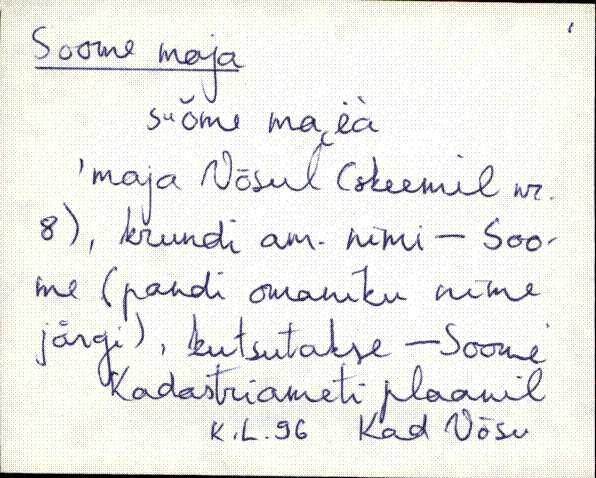 Soome maja
suŏme mai̯ėà
'maja Võsul (skeemil nr.
8), krundi am. nimi – Soo-
me (pandi omaniku nime
järgi), kutsutakse – Soome'
Kadastriameti plaanil
K.L.96 Kad Võsu